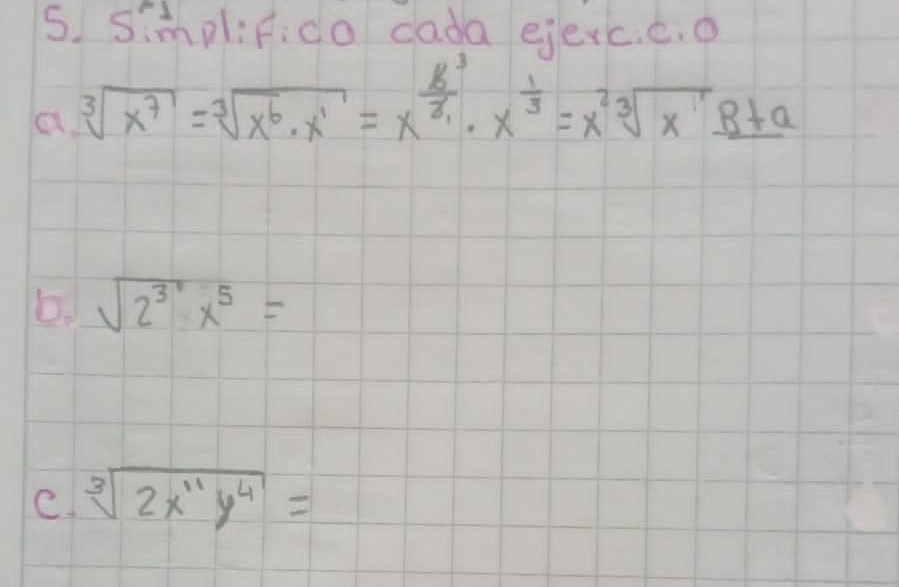 5. Simplifico cada ejercicio
a. ∛(x⁷) = ∛(x⁶ · x¹) = x^(6/3) · x^(1/3) = x² ∛(x) Rta
b. √(2³ x⁵) =
c. ∛(2x¹¹ y⁴) =